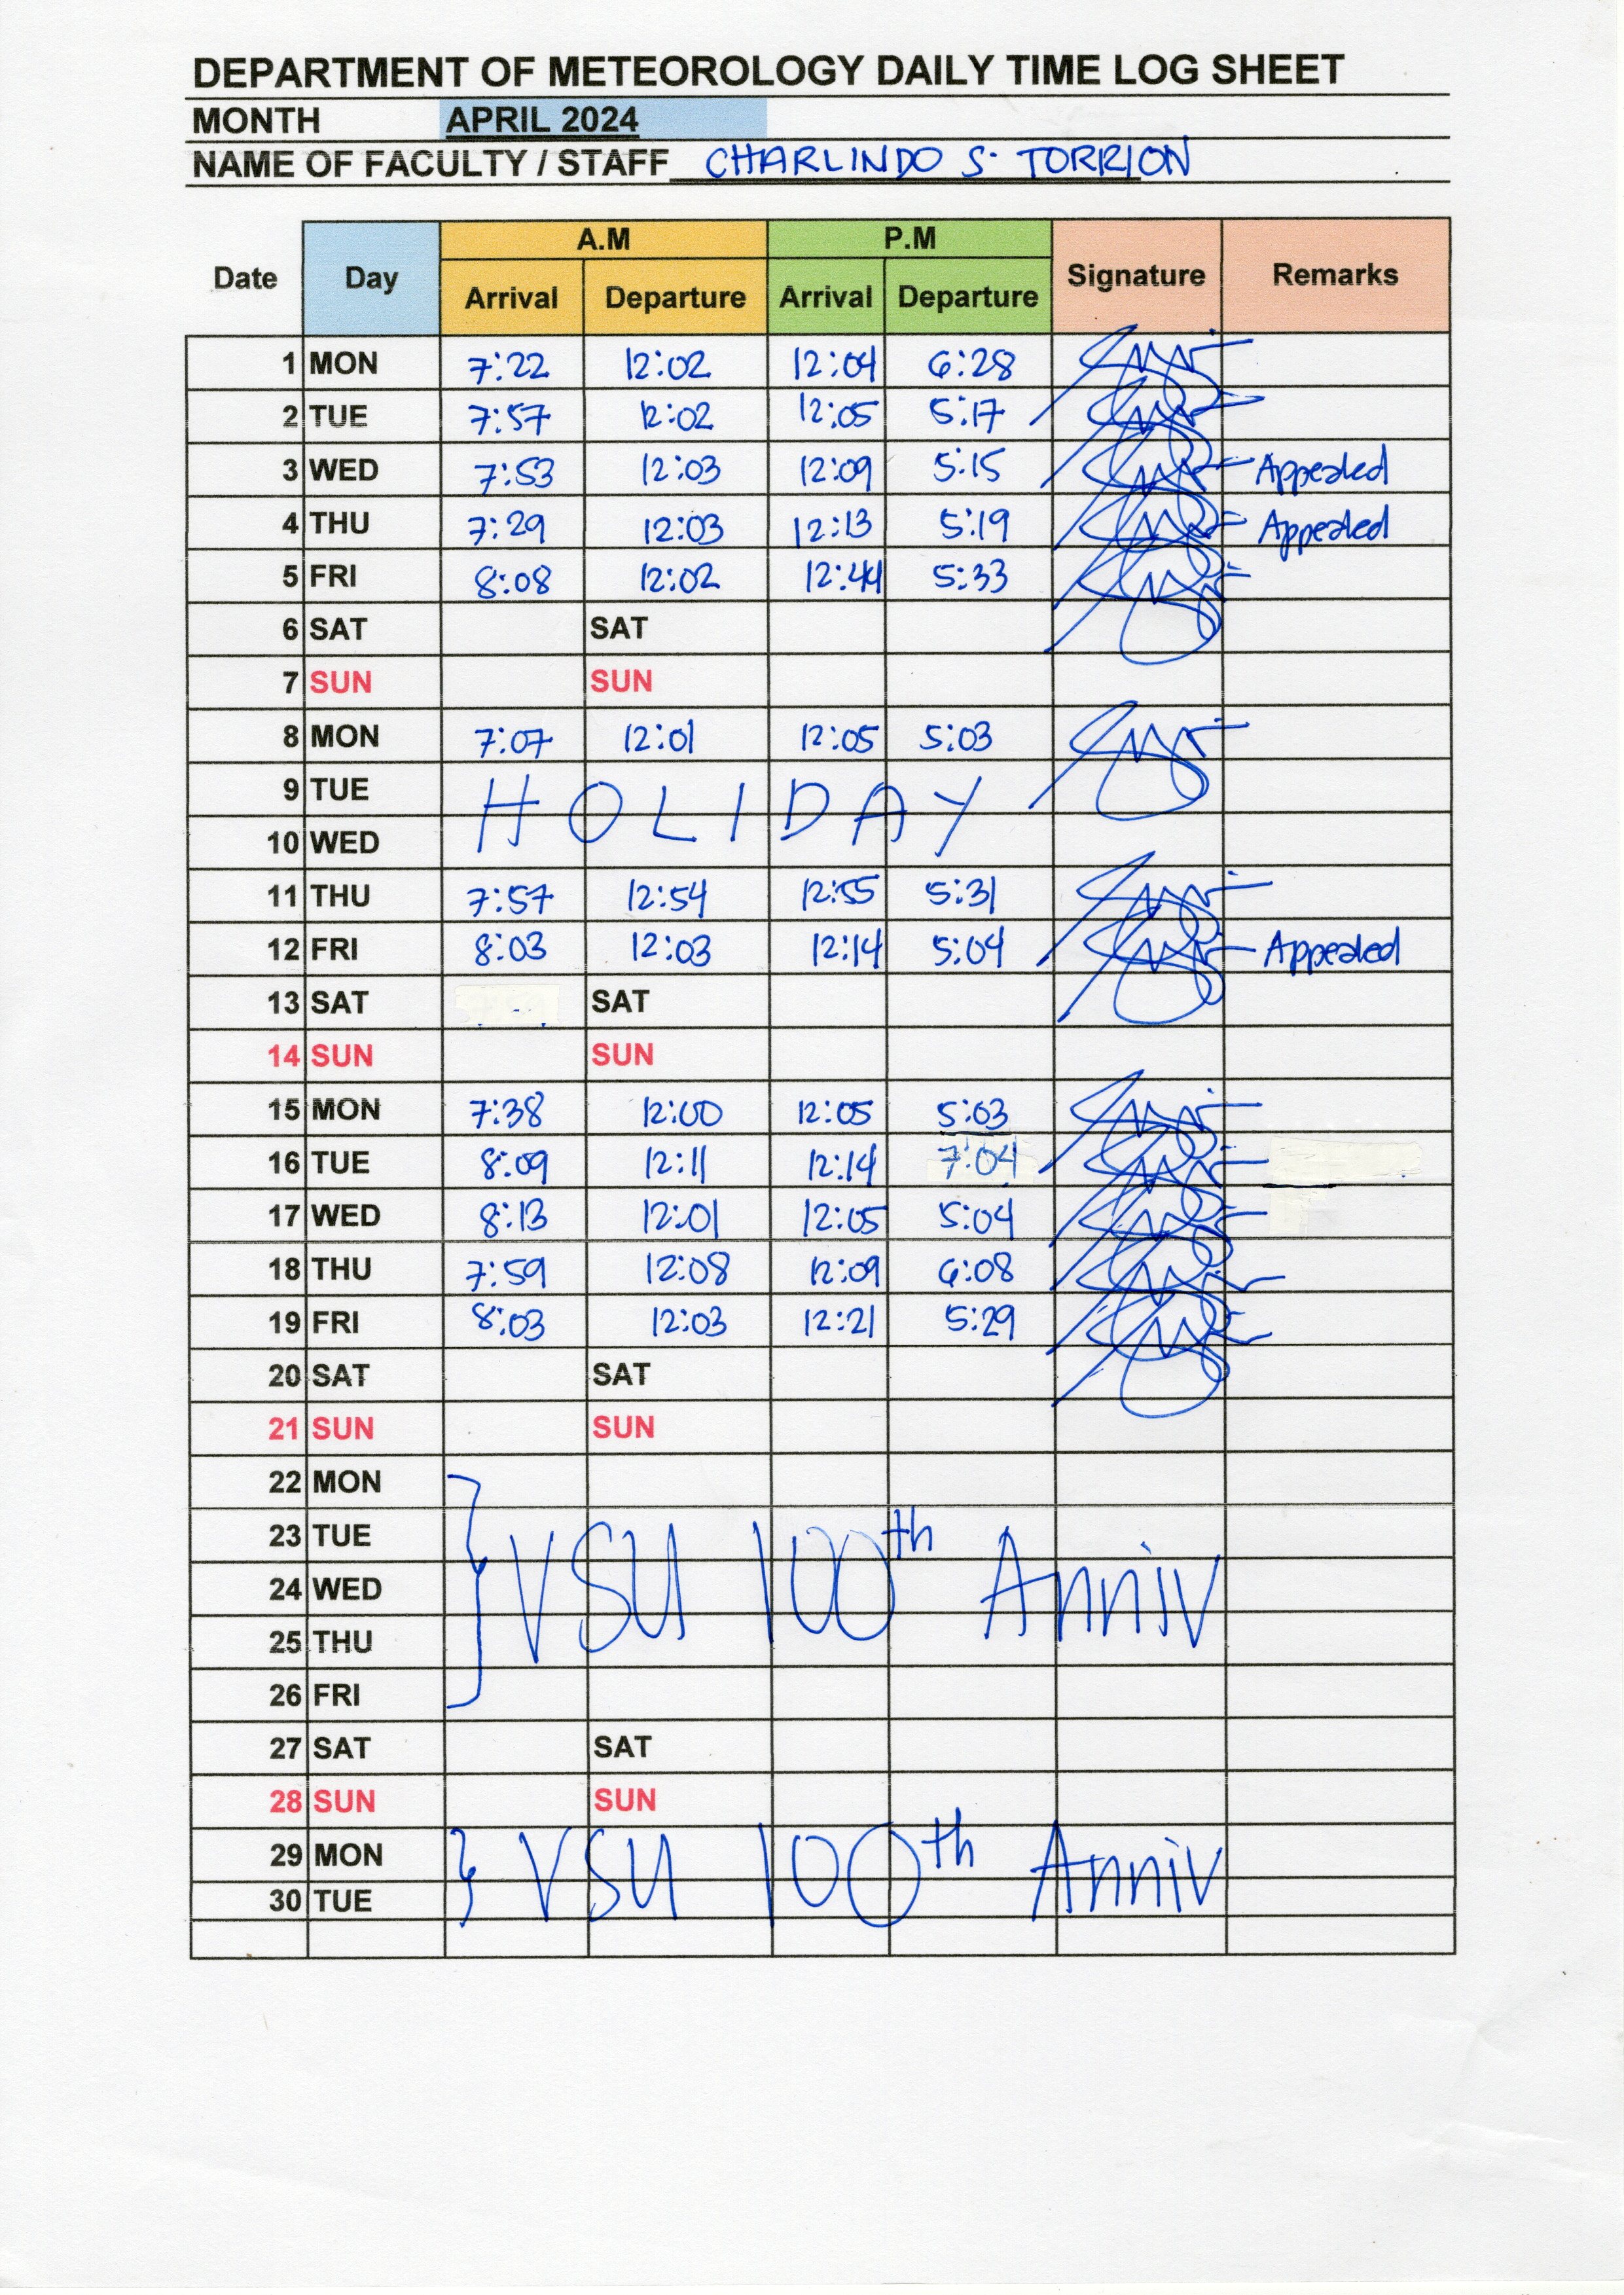 DEPARTMENT OF METEOROLOGY DAILY TIME LOG SHEET
MONTH APRIL 2024
NAME OF FACULTY / STAFF CHARLINDO S. TORRION
Date Day A.M P.M Signature Remarks
Arrival Departure Arrival Departure
1 MON 7:22 12:02 12:04 6:28
2 TUE 7:57 12:02 12:05 5:17
3 WED 7:53 12:03 12:09 5:15 Appealed
4 THU 7:29 12:03 12:13 5:19 Appealed
5 FRI 8:08 12:02 12:44 5:33
6 SAT SAT
7 SUN SUN
8 MON 7:07 12:01 12:05 5:03
9 TUE HOLIDAY
10 WED
11 THU 7:57 12:54 12:55 5:31
12 FRI 8:03 12:03 12:14 5:04 Appealed
13 SAT SAT
14 SUN SUN
15 MON 7:38 12:00 12:05 5:03
16 TUE 8:09 12:11 12:14 7:04
17 WED 8:13 12:01 12:05 5:04
18 THU 7:59 12:08 12:09 6:08
19 FRI 8:03 12:03 12:21 5:29
20 SAT SAT
21 SUN SUN
22 MON
23 TUE
24 WED VSU 100th Anniv
25 THU
26 FRI
27 SAT SAT
28 SUN SUN
29 MON VSU 100th Anniv
30 TUE